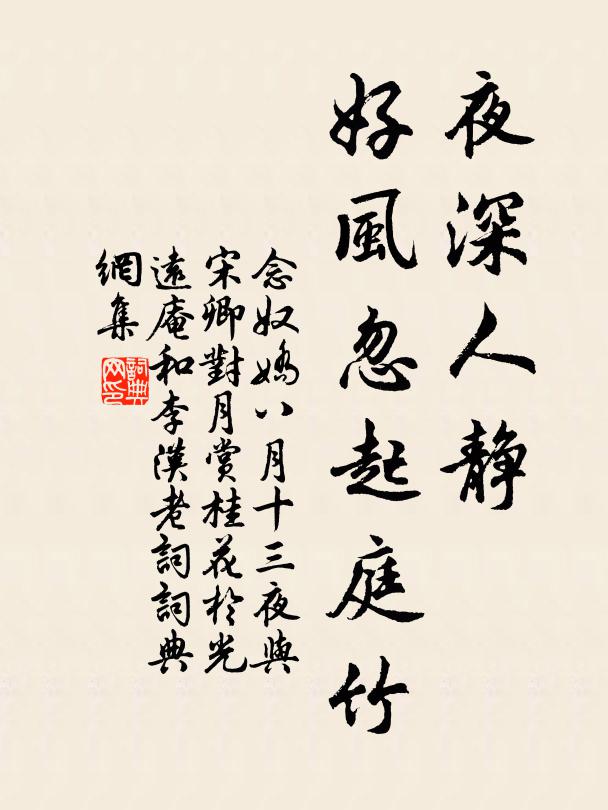 夜深人静
好風忽起庭竹
念奴嬌八月十三夜與
宋卿對月賞桂花於光
遠庵和李漢老詞詞典
網集
詞典
网印